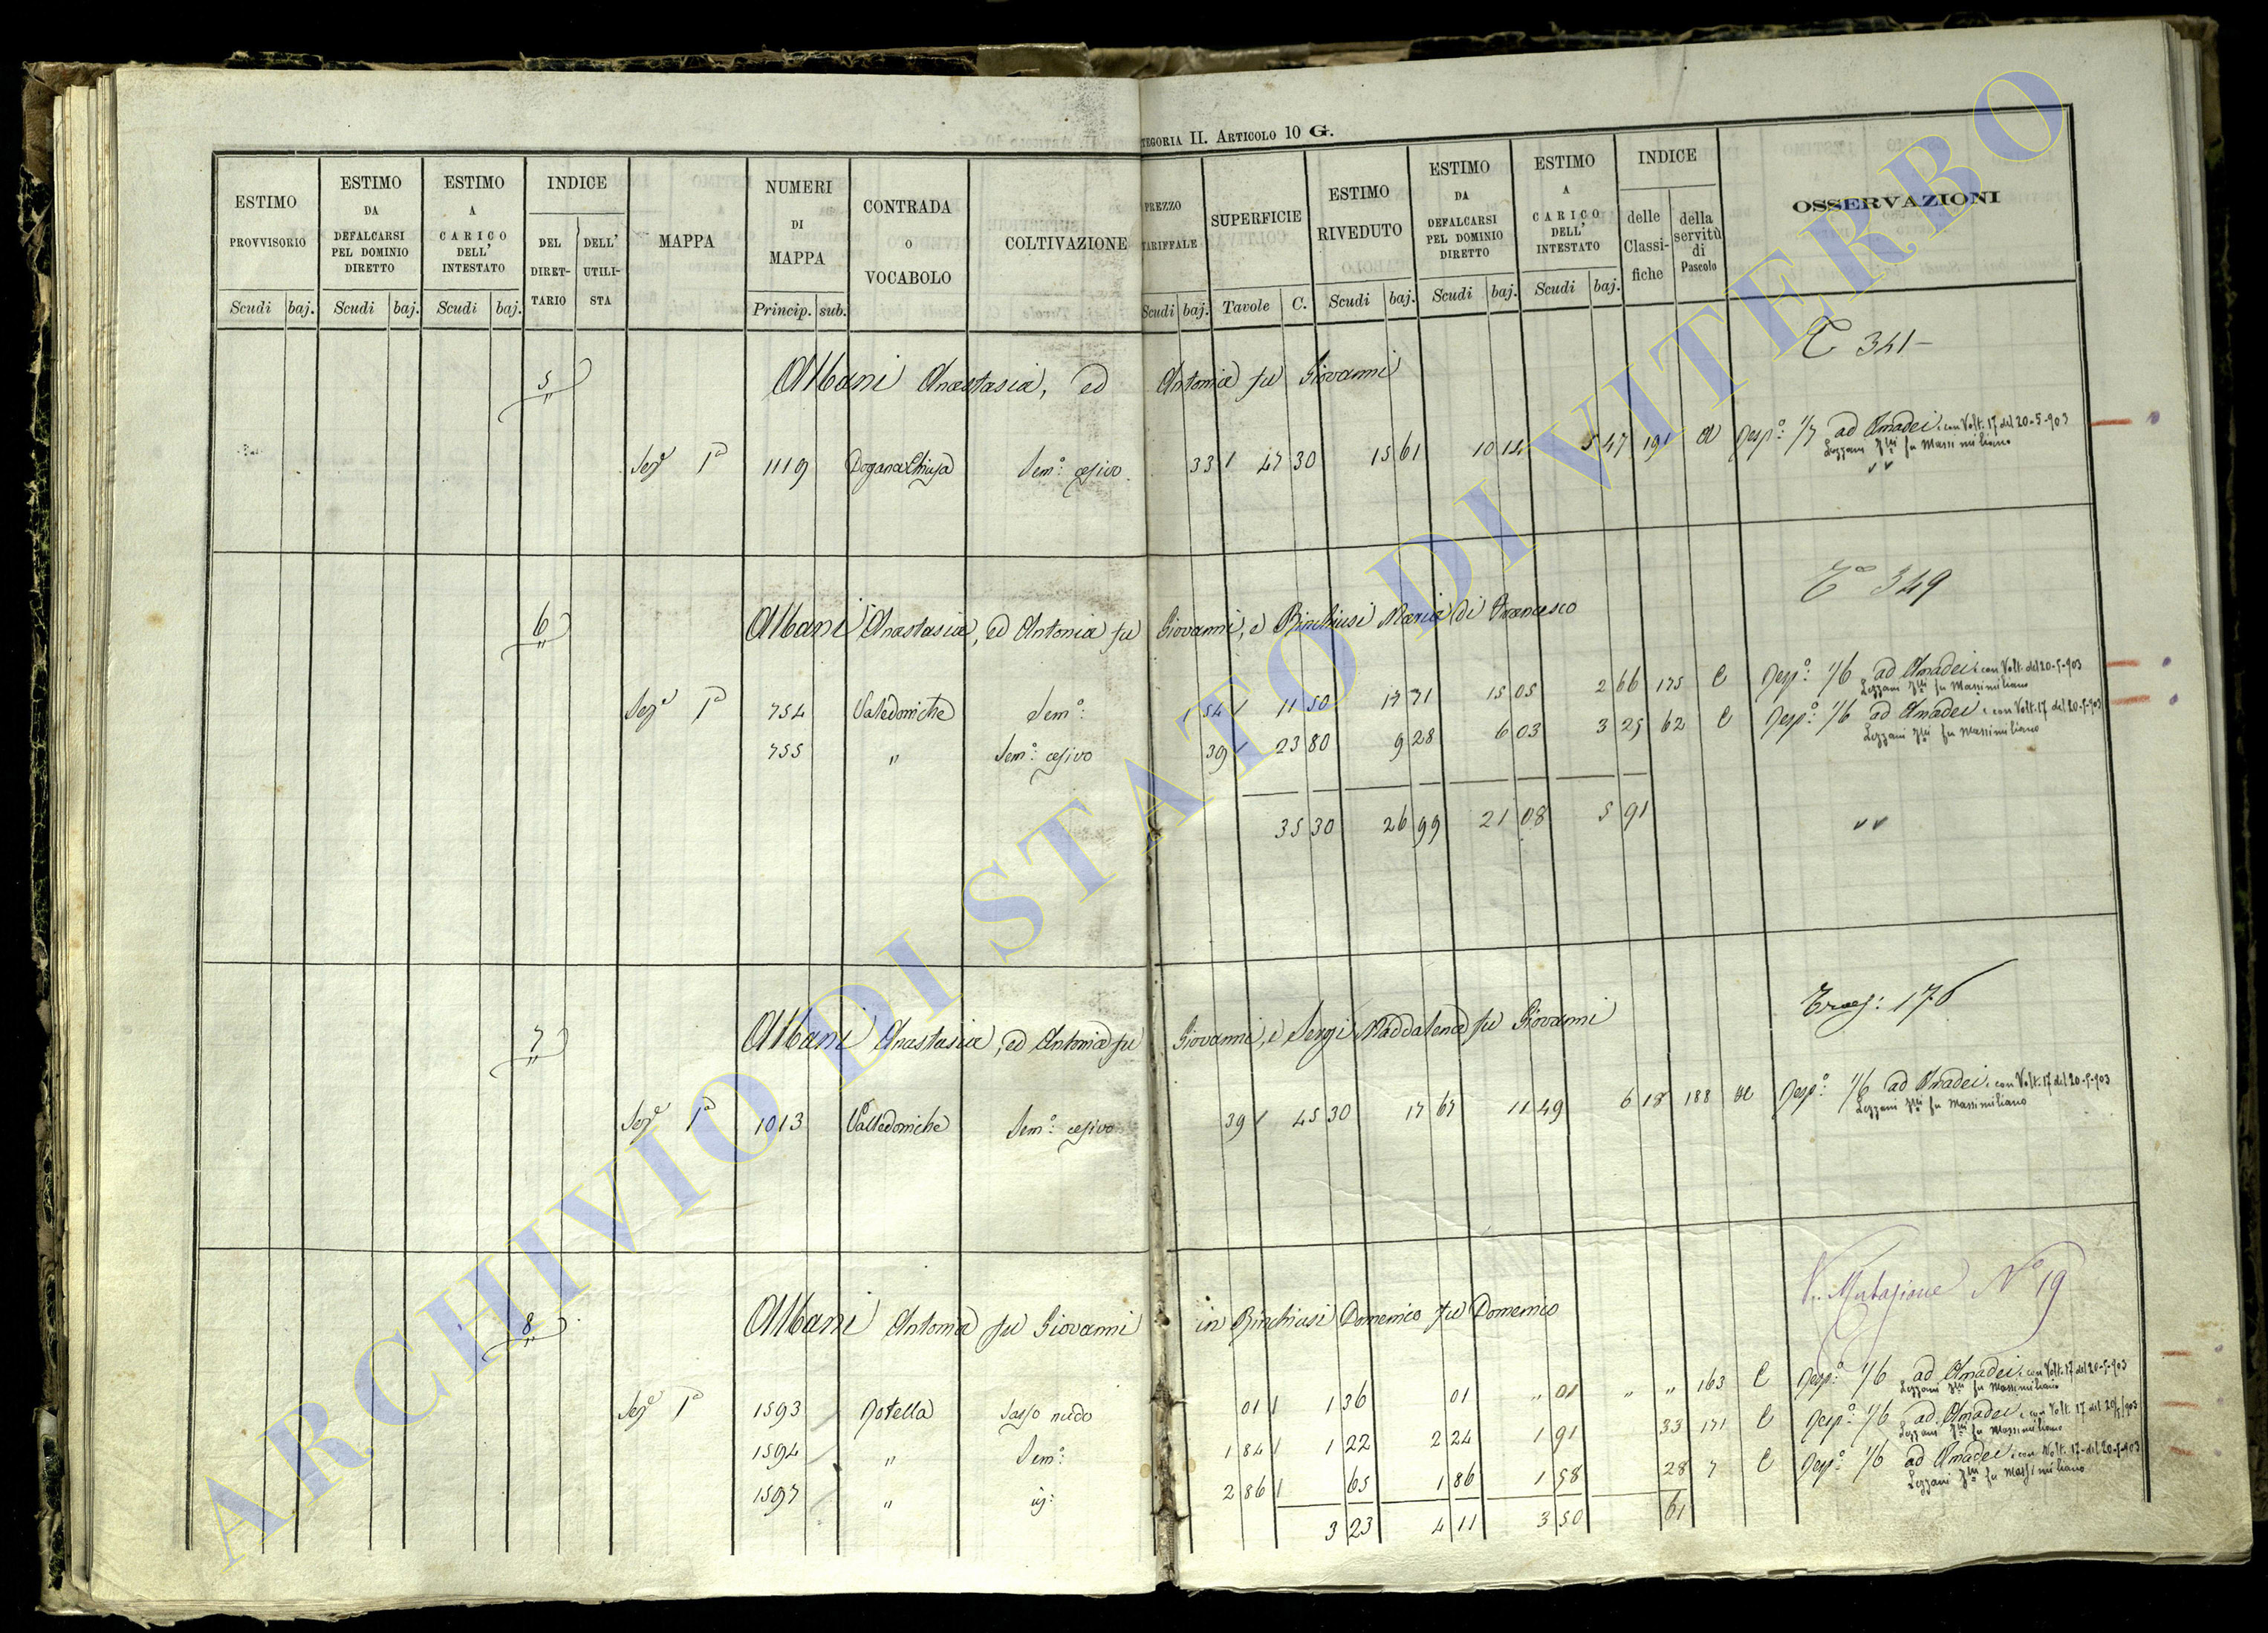 TEGORIA II. ARTICOLO 10 G.
ESTIMO PROVVISORIO Scudi baj.
ESTIMO DA DEFALCARSI PEL DOMINIO DIRETTO Scudi baj.
ESTIMO A CARICO DELL' INTESTATO Scudi baj.
INDICE DEL DIRETTARIO DELL' UTILISTA
MAPPA
NUMERI DI MAPPA Princip. sub.
CONTRADA O VOCABOLO
COLTIVAZIONE
PREZZO TARIFFALE Scudi baj.
SUPERFICIE Tavole C.
ESTIMO RIVEDUTO Scudi baj.
ESTIMO DA DEFALCARSI PEL DOMINIO DIRETTO Scudi baj.
ESTIMO A CARICO DELL' INTESTATO Scudi baj.
INDICE delle Classifiche della servitù di Pascolo
OSSERVAZIONI
341
5 Albani Anastasia, ed Antonia fu Giovanni
Sez.e 1a 1119 Dogana Chiusa Sem.o cesivo 33 1 47 30 15 61 10 14 5 47 191 Resp.o 1/7 ad Amadei e con Volt. 17 del 20-5-903
Lezzani fu Massimiliano
349
6 Albani Anastasia, ed Antonia fu Giovanni, e Binchiusi Maria di Francesco
Sez.e 1a 754 Valledoniche Sem.o 54 11 50 17 71 15 05 2 66 175 C Resp.o 1/6 ad Amadei e con Volt. del 20-5-903
Lezzani fu Massimiliano
755 " Sem.o cesivo 39 23 80 9 28 6 03 3 25 62 C Resp.o 1/6 ad Amadei e con Volt. 17 del 20-5-903
Lezzani fu Massimiliano
35 30 26 99 21 08 5 91
Trasf: 176
7 Albani Anastasia, ed Antonia fu Giovanni, e Sergi Maddalena fu Giovanni
Sez.e 1a 1013 Valledoniche Sem.o cesivo 39 45 30 17 67 11 49 6 18 188 Resp.o 1/6 ad Amadei e con Volt. 17 del 20-5-903
Lezzani fu Massimiliano
V. Mutazione No 19
8 Albani Antonia fu Giovanni in Binchiusi Domenico fu Domenico
Sez.e 1a 1593 Rotella Sasso nudo 01 1 1 36 01 " 01 " " 163 C Resp.o 1/6 ad Amadei e con Volt. 17 del 20-5-903
Lezzani fu Massimiliano
1594 " Sem.o 1 84 1 1 22 2 24 1 91 33 171 C Resp.o 1/6 ad Amadei e con Volt. 17 del 20/5/903
Lezzani fu Massimiliano
1597 " id: 2 86 1 65 1 86 1 58 28 7 C Resp.o 1/6 ad Amadei e con Volt. 17 del 20-5-903
Lezzani fu Massimiliano
3 23 4 11 3 50 61
ARCHIVIO DI STATO DI VITERBO